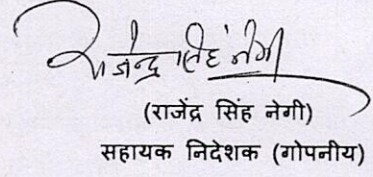 राजेन्द्र सिंह नेगी
(राजेंद्र सिंह नेगी)
सहायक निदेशक (गोपनीय)